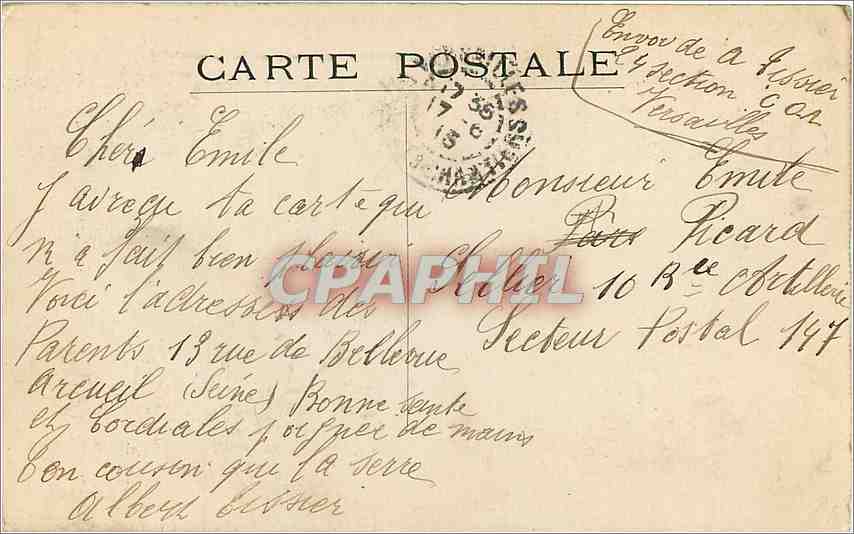 CARTE POSTALE
Envoi de A Tissier
24 section C O A
Versailles
17 35
17 - 6
Cher Emile
J ai reçu ta carte qui
m a fait bien plaisir
Voici l'adresses des
Parents 13 rue de Bellevue
Arcueil (Seine) Bonne sante
et cordiales poignee de mains
ton cousin qui la serre
Albert Tissier
Monsieur Emile
Paris Picard
Sellier 10 Rce Artillerie
Secteur Postal 147
CPAPHIL